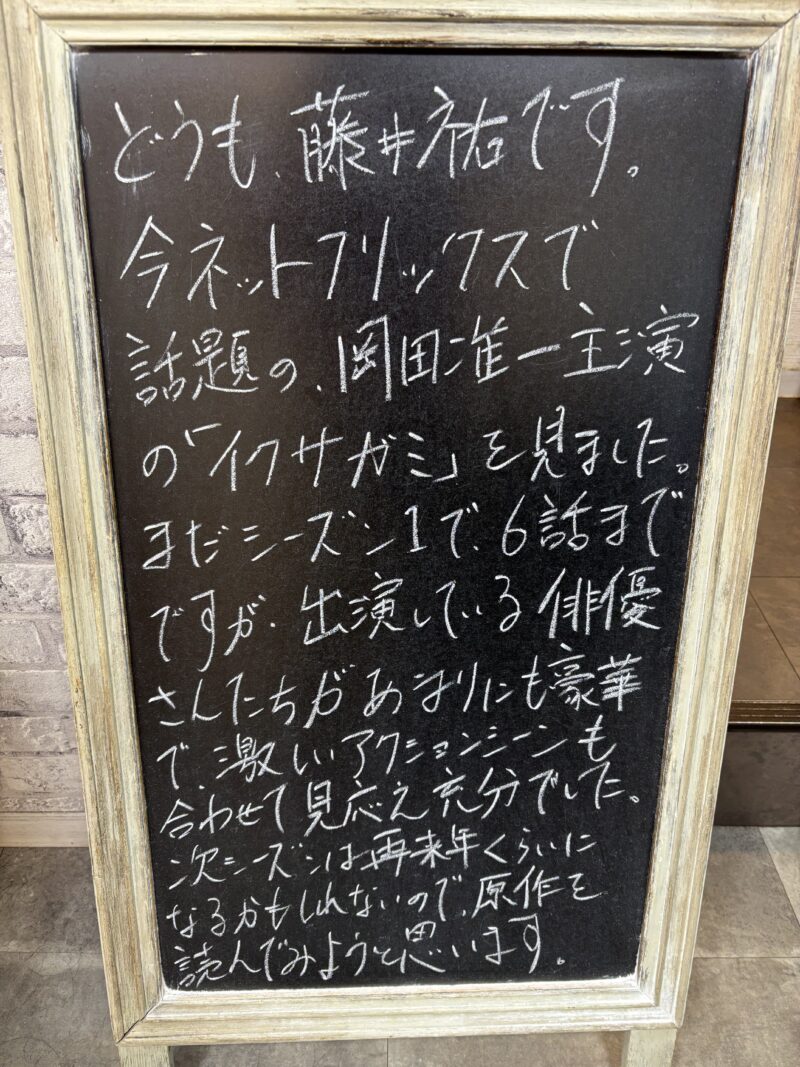 どうも、藤井祐です。
今ネットフリックスで
話題の、岡田准一主演
の「イクサガミ」を見ました。
まだシーズン1で、6話まで
ですが、出演している俳優
さんたちがあまりにも豪華
で、激しいアクションシーンも
合わせて見応え充分でした。
次シーズンは再来年くらいに
なるかもしれないので、原作を
読んでみようと思います。